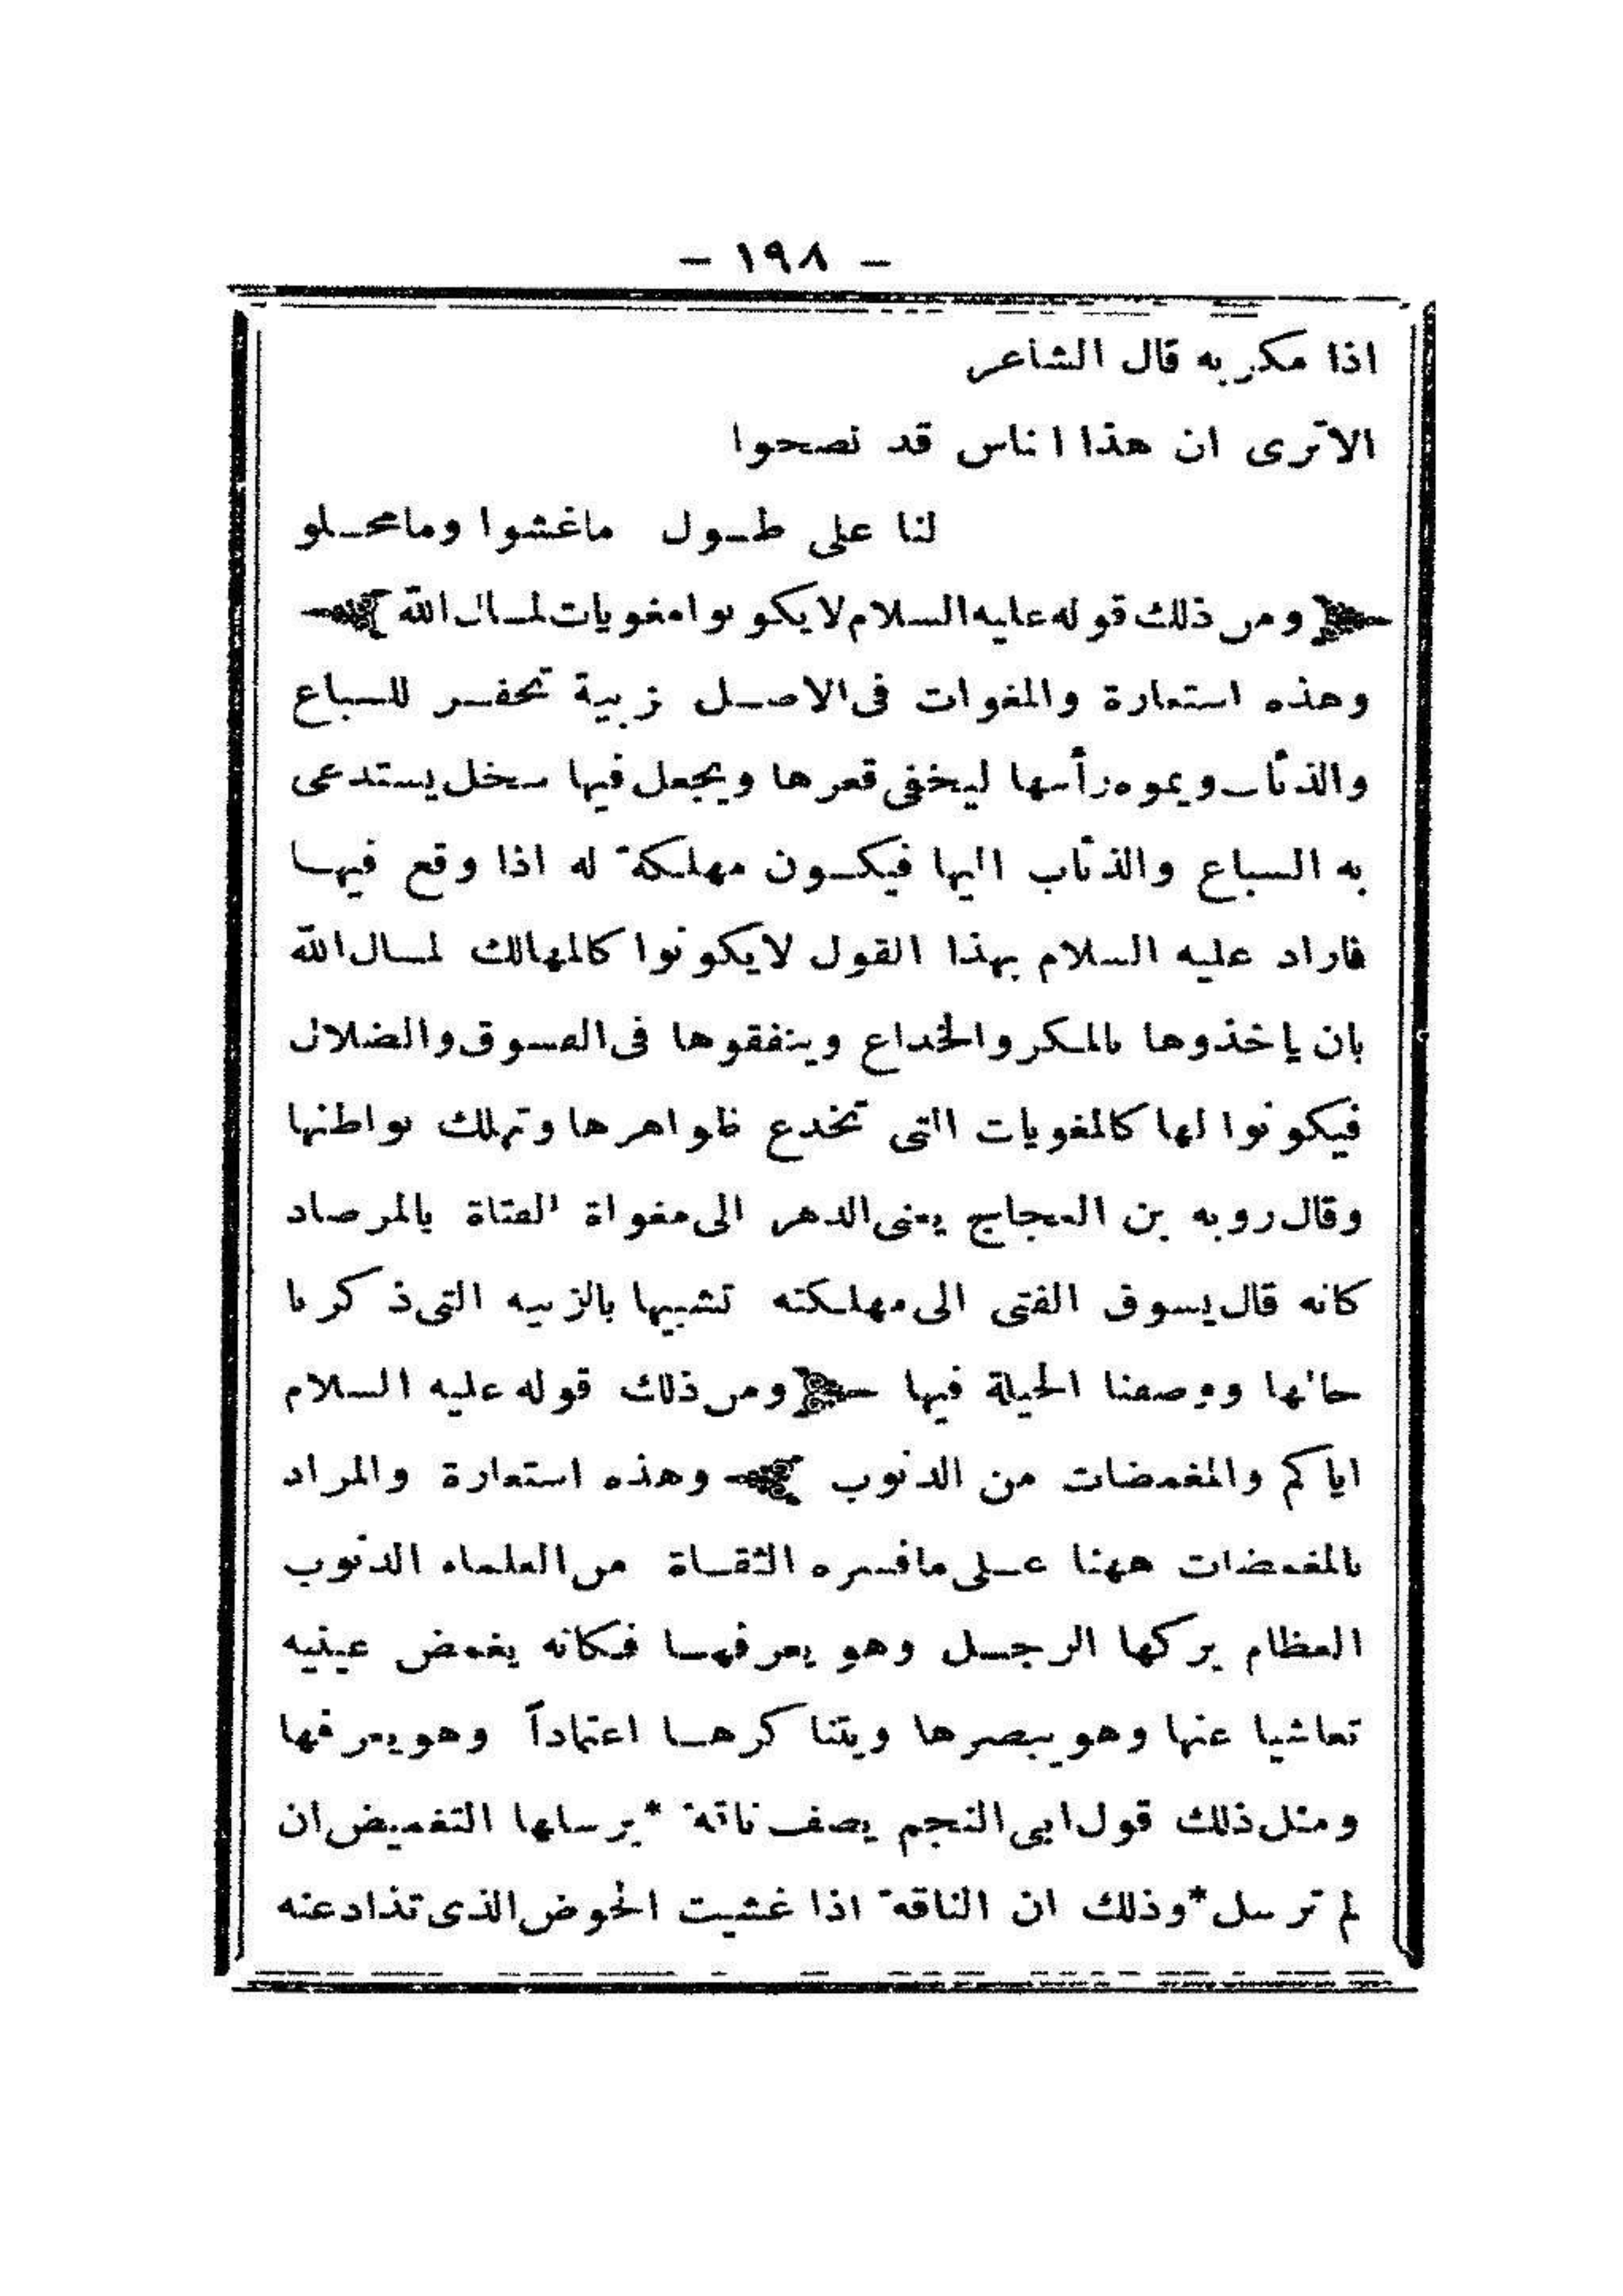 - ١٩٨ -
اذا مكر به قال الشاعر
الاترى ان هذا اناس قد نصحوا
لنا على طول ماغشوا ومامحلو
ومن ذلك قوله عليه السلام لايكونوا مغويات لمال الله
وهذه استعارة والمغوات فى الاصل زبية تحفر للسباع
والذئاب ويموه رأسها ليخفى قعرها ويجعل فيها سخل يستدعى
به السباع والذئاب اليها فيكون مهلكة له اذا وقع فيها
فاراد عليه السلام بهذا القول لايكونوا كالمهالك لمال الله
بان ياخذوها بالمكر والخداع وينفقوها فى الفسوق والضلال
فيكونوا لها كالمغويات التى تخدع ظواهرها وتهلك بواطنها
وقال روبه بن العجاج يعنى الدهر الى مغواة الفتاة بالمرصاد
كانه قال يسوق الفتى الى مهلكته تشبيها بالزبيه التى ذكرنا
حالها ووصفنا الحيلة فيها ومن ذلك قوله عليه السلام
اياكم والمغمضات من الذنوب وهذه استعارة والمراد
بالمغمضات ههنا على مافسره الثقاة من العلماء الذنوب
العظام يركبها الرجل وهو يعرفها فكانه يغمض عينيه
تعاشيا عنها وهو يبصرها ويتناكرها اعتماداً وهو يعرفها
ومثل ذلك قول ابى النجم يصف ناقة *يرسلها التغميض ان
لم ترسل* وذلك ان الناقة اذا غشيت الحوض الذى تذاد عنه